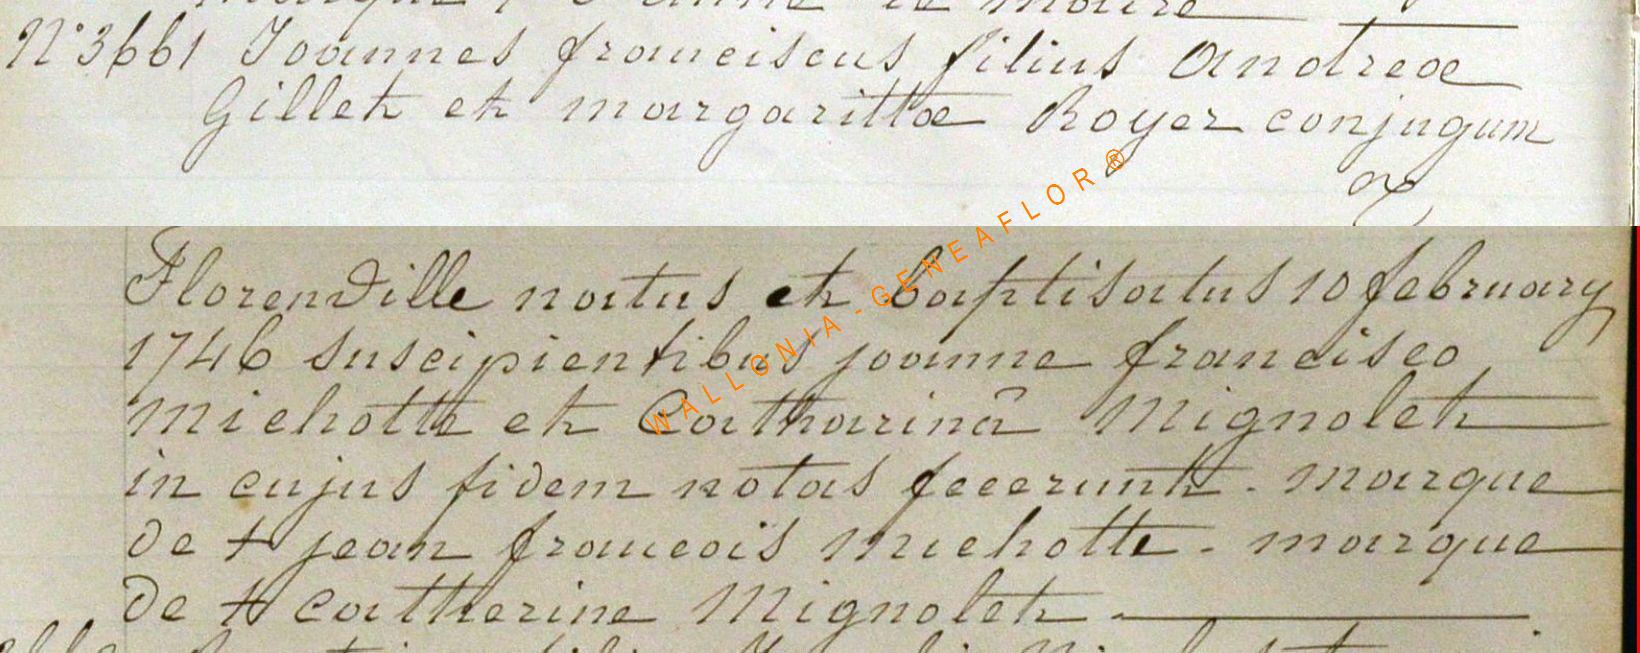 N° 3661 Joannes franciscus filius Andreæ
Gillet et margarittæ Royer conjugum
ex
Florenville natus et baptisatus 10 february
1746 suscipientibus joanne francisco
Michotte et Catharinâ Mignolet
in cujus fidem notas fecerunt. marque
de + jean francois Michotte - marque
de + catherine Mignolet.
WALLONIA-GENEAFLOR®